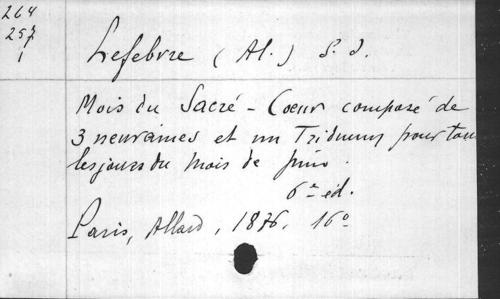 264
257
1
Lefebvre (Al.) S. J.
Mois du Sacré-Coeur composé de
3 neuvaines et un Triduum pour tous
les jours du mois de juin.
6e éd.
Paris, Allard, 1876. 16o